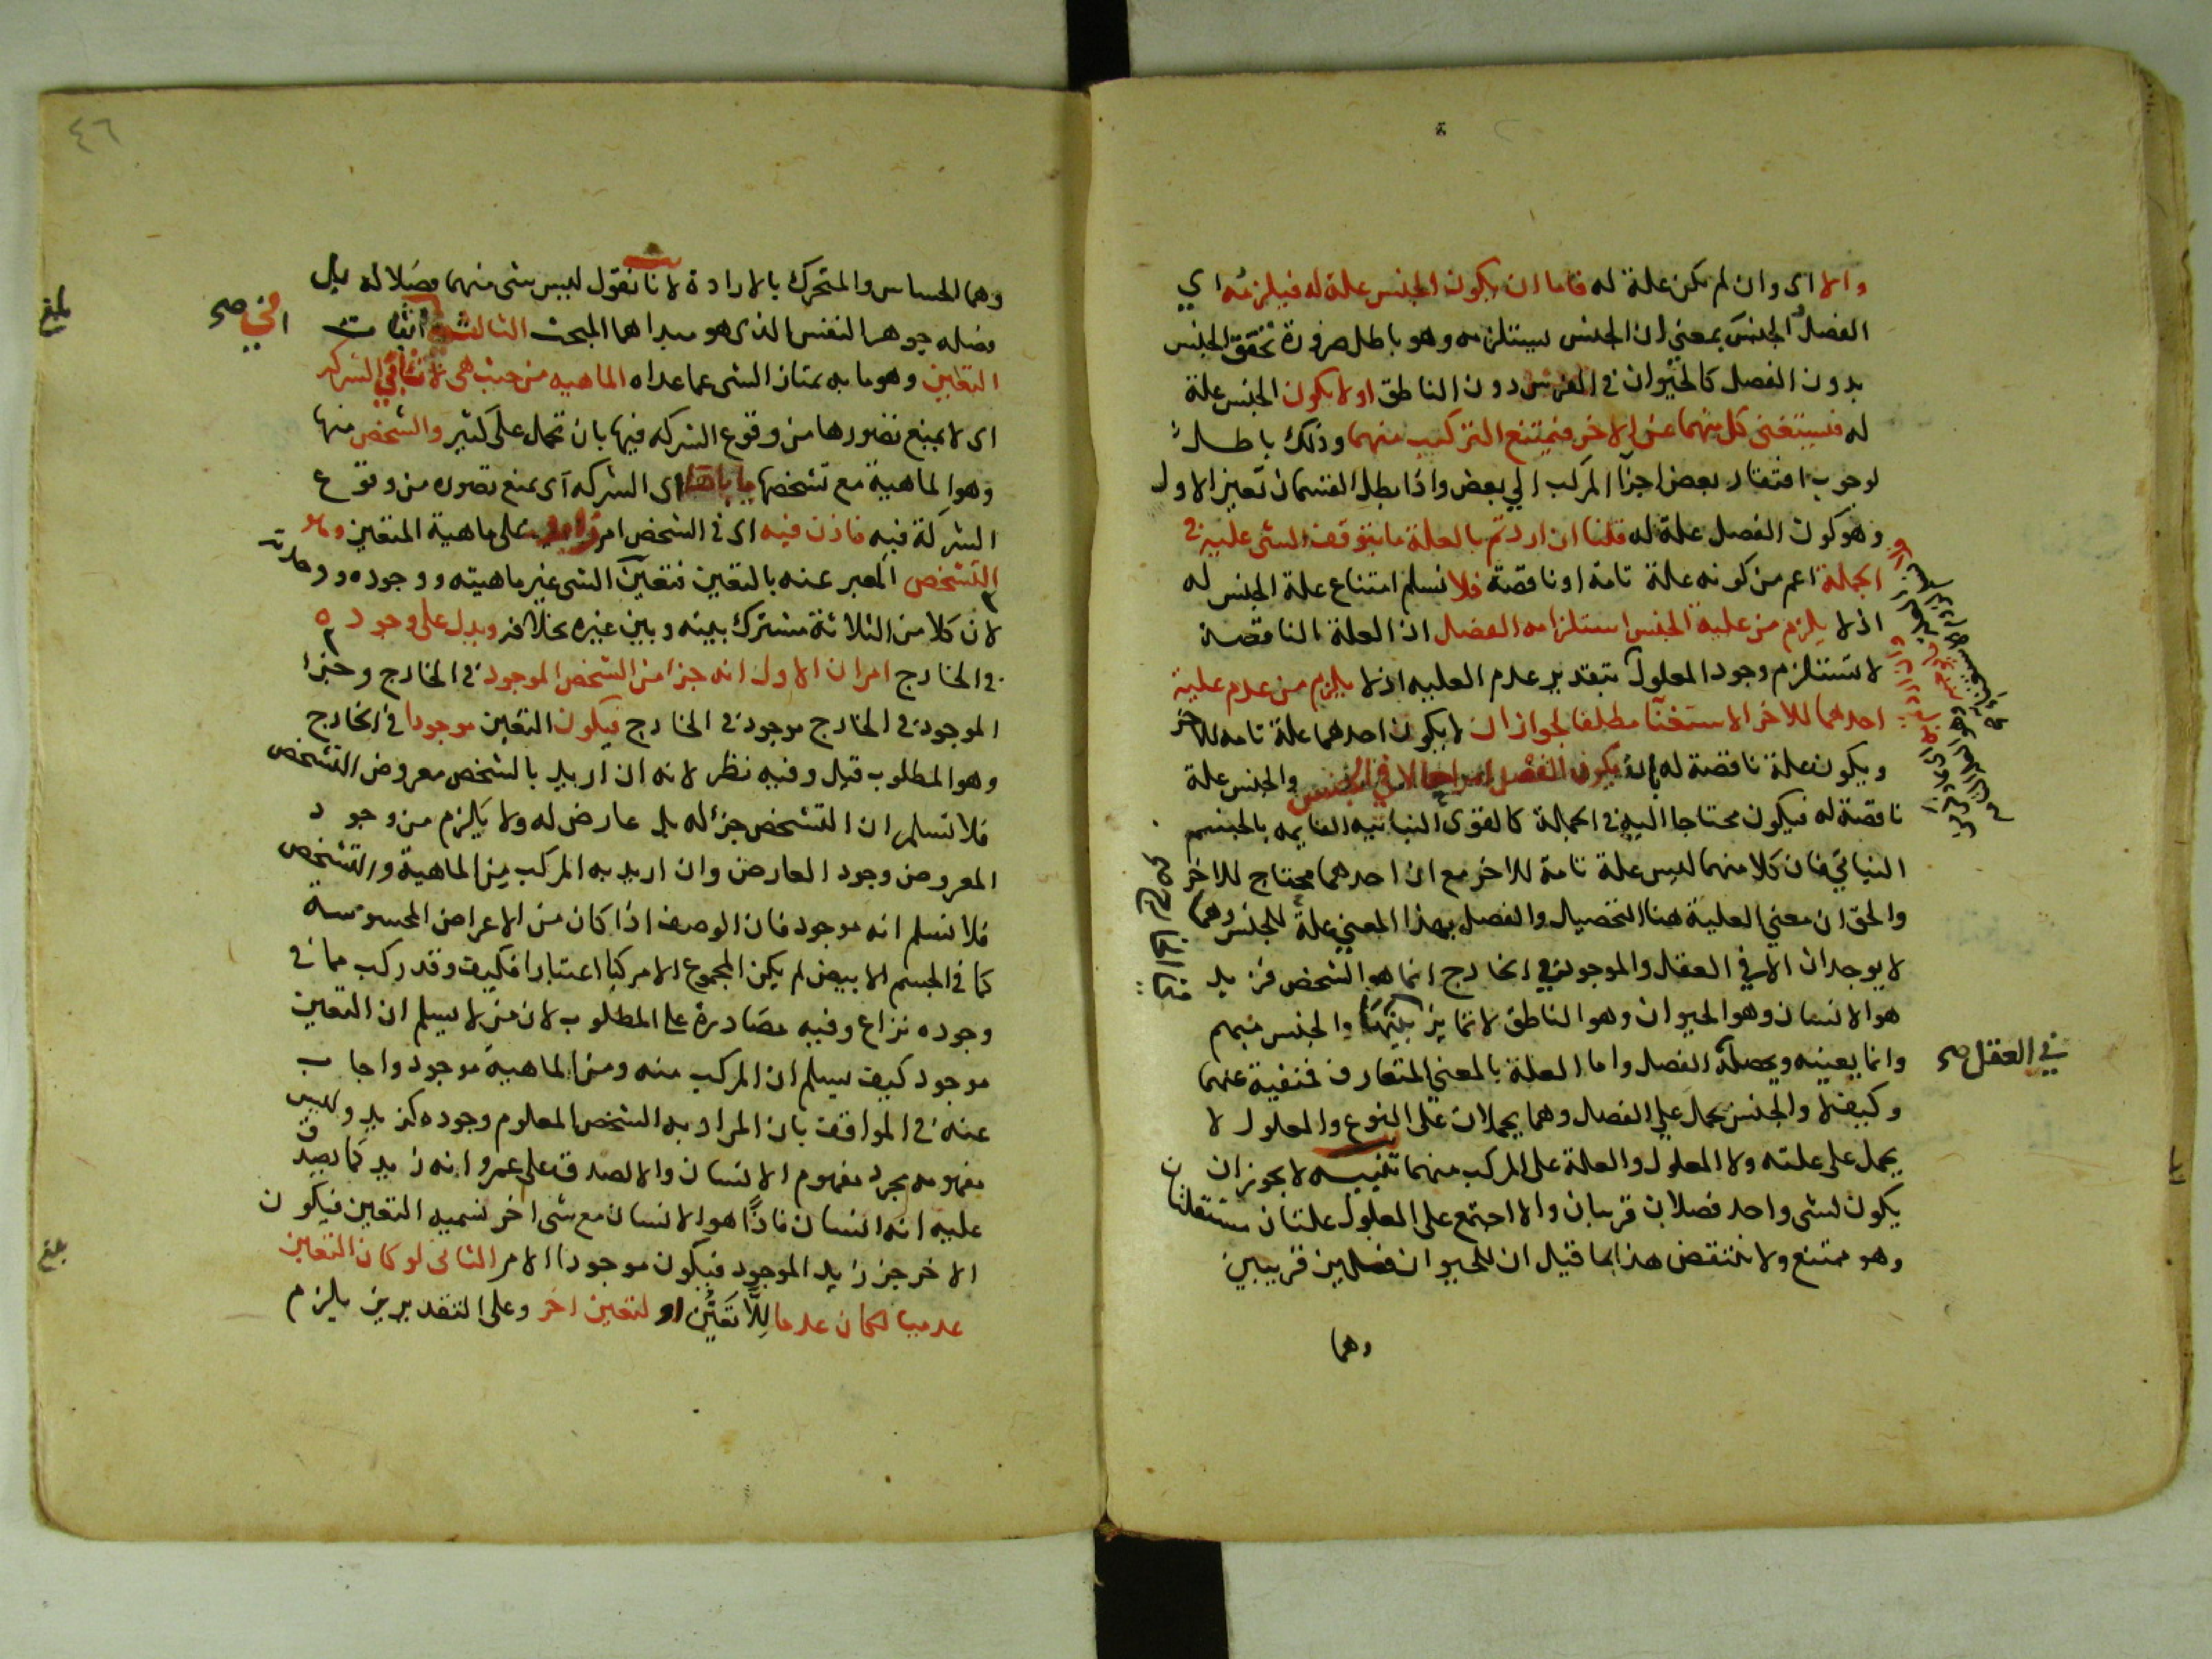 والا اى وان لم يكن علة له فاما ان يكون الجنس علة له فيلزمه اي
الفصل الجنس بمعنى ان الجنس يستلزمه وهو باطل ضرورة تحقق الجنس
بدون الفصل كالحيوان فى الفرس دون الناطق او لا يكون الجنس علة
له فيستغنى كل منهما عن الاخر فيمتنع التركيب منهما وذلك باطل
لوجوب افتقار بعض اجزآ المركب الي بعض واذا بطل القسمان تعين الاول
وهو كون الفصل علة له قلنا ان اردتم بالعلة ما يتوقف الشى عليه فى
الجملة اعم من كونه علة تامة او ناقصة فلا نسلم امتناع علة الجنس له
اذ لا يلزم من علية الجنس استلزامه الفصل اذ العلة الناقصة
لا تستلزم وجود المعلول بتقدير عدم العليه اذ لا يلزم من عدم علية
احدهما للاخر الاستغنآ مطلقا لجواز ان لا يكون احدهما علة تامه للاخر
ويكون علة ناقصة له بان يكون الفصل امرا حالا في الجنس والجنس علة
ناقصة له فيكون محتاجا اليه فى الجملة كالقوى النباتيه القايمه بالجسم
النباتي فان كلا منهما ليس علة تامة للاخر مع ان احدهما محتاج للاخر
والحق ان معني العلية هنا التحصيل والفصل بهذا المعني علة للجنس وهما
لا يوجدان الا في العقل والموجود في الخارج انما هو الشخص فزيد
هو الانسان وهو الحيوان وهو الناطق لا تمايز بينها والجنس مبهم
وانما يعينه ويحصله الفصل واما العلة بالمعني المتعارف فمنفية عنهما
في العقل صح
وكيف لا والجنس يحمل علي الفصل وهما يحملان على النوع والمعلول لا
يحمل على علته ولا المعلول والعلة على المركب منهما تنبيه لا يجوز ان
يكون لشى واحد فصلان قريبان والا اجتمع على المعلول علتان مستقلتان
وهو ممتنع ولا ينتقض هذا بما قيل ان للحيوان فصلين قريبين
وهما
٤٦
وهما الحساس والمتحرك بالارادة لانا نقول ليس شى منهما فصلا له بل
فصله جوهر النفس الذى هو مبداهما المبحث الثالث اثبات
في صح
بلغ
التعين وهو ما به يمتاز الشى عما عداه الماهيه من حيث هى لا تنافي الشركه
اى لا يمنع تصورها من وقوع الشركه فيها بان تحمل على كثير والشخص منها
وهو الماهية مع تشخصها ياباها اى الشركه اى يمنع تصوره من وقوع
الشركة فيه فاذن فيه اى فى الشخص امر زايد على ماهية المتعين وهو
التشخص المعبر عنه بالتعين فتعين الشى غير ماهيته ووجوده ووحدته
لان كلا من الثلاثة مشترك بينه وبين غيره بخلافه ويدل على وجوده
فى الخارج امران الاول انه جزا من الشخص الموجود فى الخارج وجزا
الموجود فى الخارج موجود فى الخارج فيكون التعين موجودا فى الخارج
وهو المطلوب قيل وفيه نظر لانه ان اريد بالشخص معروض التشخص
فلا نسلم ان التشخص جز له بل عارض له ولا يلزم من وجود
المعروض وجود العارض وان اريد به المركب من الماهية والتشخص
فلا نسلم انه موجود فان الوصف اذا كان من الاعراض المحسوسة
كما فى الجسم الابيض لم يكن المجموع الا مركبا اعتبارا فكيف وقد ركب مما فى
وجوده نزاع وفيه مصادرة على المطلوب لان من لا يسلم ان التعين
موجود كيف يسلم ان المركب منه ومن الماهية موجود واجاب
عنه فى المواقف بان المراد به الشخص المعلوم وجوده كزيد وليس
مفهومه مجرد مفهوم الانسان والا لصدق على عمرو انه زيد كما يصدق
عليه انه انسان فاذًا هو الانسان مع شى اخر نسميه التعين فيكون
الاخر جز زيد الموجود فيكون موجودا الامر الثانى لو كان التعين
بلغ
عدميا لكان عدما لِلَّا تَعَيُّن او لتعين اخر وعلى التقديرين يلزم